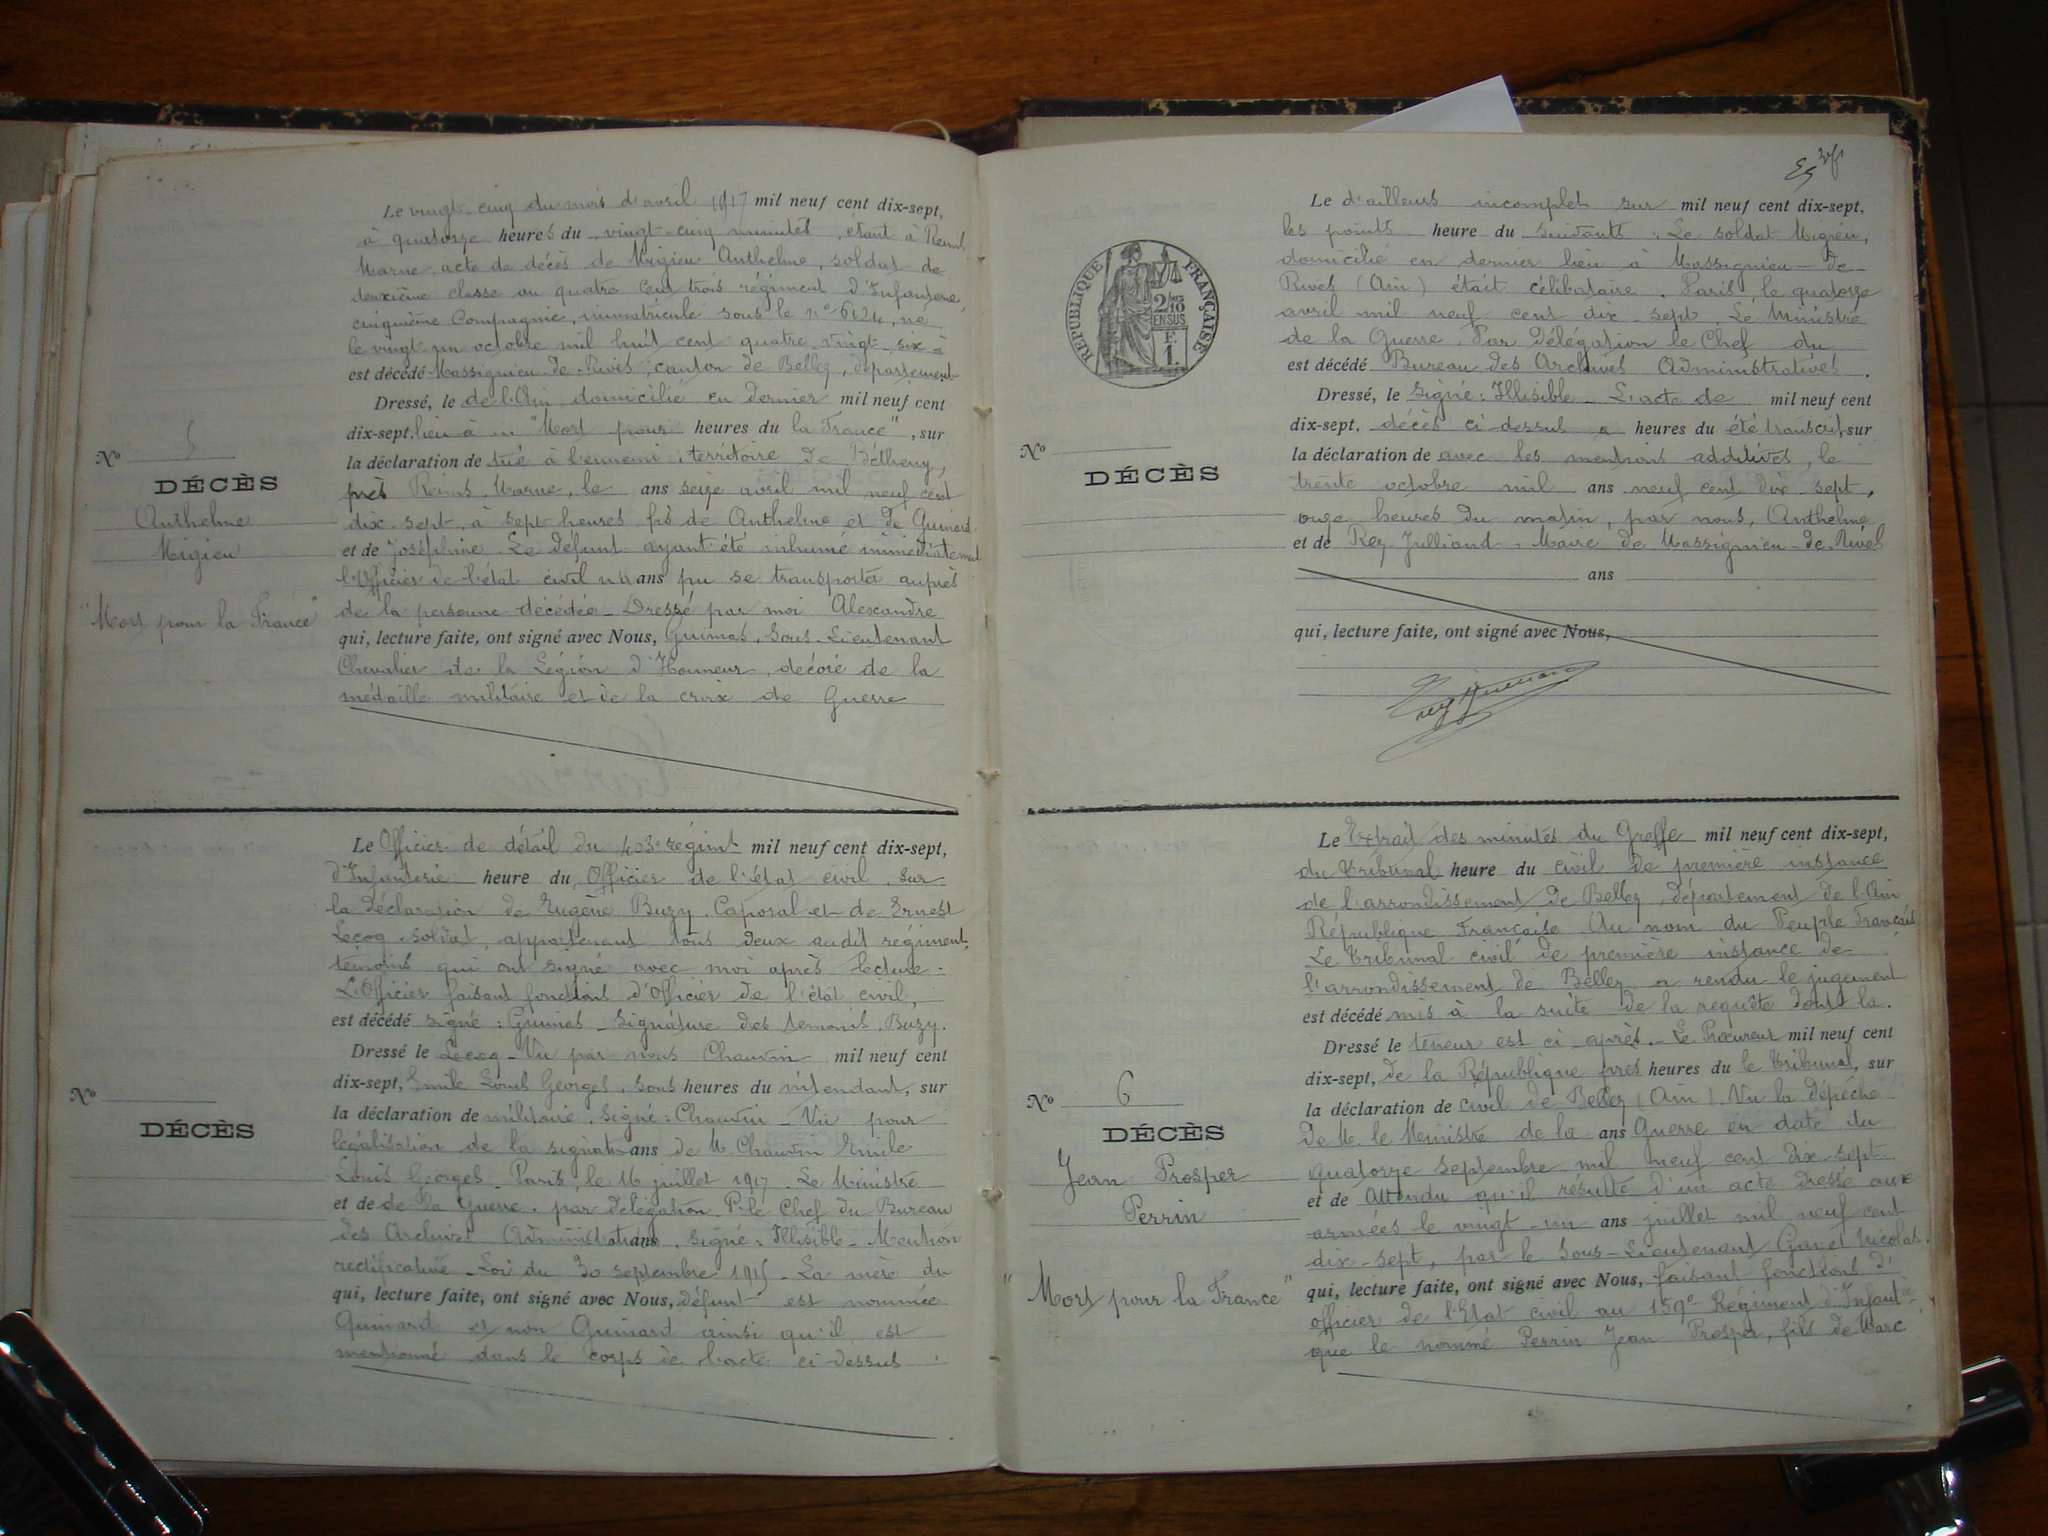 Le vingt-cinq du mois d'avril 1917 mil neuf cent dix-sept,
à quatorze heures du vingt-cinq minutes, étant à Reims
Marne, acte de décès de Migieu Anthelme, soldat de
deuxième classe au quatre cent trois régiment d'Infanterie
cinquième Compagnie, immatriculé sous le n° 6124, né
le vingt un octobre mil huit cent quatre-vingt-six à
est décédé Massignieu-de-Rives, canton de Belley, département
Dressé, le de l'Ain domicilié en dernier mil neuf cent
dix-sept, lieu à ... "Mort pour heures du la France", sur
la déclaration de tué à l'ennemi, territoire de Bétheny,
près Reims, Marne, le ans seize avril mil neuf cent
dix sept, à sept heures, fils de Anthelme et de Guinard
et de Joséphine. Le défunt ayant été inhumé immédiatement
l'Officier de l'état civil n'a ans pu se transporter auprès
de la personne décédée - Dressé par moi Alexandre
qui, lecture faite, ont signé avec Nous, Guimas, Sous-Lieutenant
Chevalier de la Légion d'Honneur, décoré de la
médaille militaire et de la croix de Guerre
No 5
DÉCÈS
Anthelme
Migieu
"Mort pour la France"
Le Officier de détail du 403e régimt mil neuf cent dix-sept,
d'Infanterie heure du Officier de l'état civil, sur
la déclaration de Eugène Buzy, Caporal et de Ernest
Lecoq, soldat, appartenant tous deux audit régiment,
témoins qui ont signé avec moi après lecture.
L'Officier faisant fonctions d'Officier de l'état civil,
est décédé signé : Guimas - Signature des témoins, Buzy.
Dressé le Lecoq - Vu par nous Chauvin mil neuf cent
dix-sept, Emile Louis Georges, sous heures du intendant, sur
la déclaration de militaire, signé : Chauvin - Vu pour
légalisation de la signat. ans de M. Chauvin Emile
Louis Georges. Paris, le 16 juillet 1917. Le Ministre
et de de la Guerre, par délégation. P. le Chef du Bureau
des Archives Administratives ans, signé : Illisible - Mention
rectificative - Loi du 30 septembre 1915 - La mère du
qui, lecture faite, ont signé avec Nous, défunt est nommée
Guinard et non Guinard ainsi qu'il est
mentionné dans le corps de l'acte ci-dessus.
No
DÉCÈS
Le d'ailleurs incomplet sur mil neuf cent dix-sept,
les points heure du suivants : Le soldat Migieu,
domicilié en dernier lieu à Massignieu-de-
Rives (Ain) était célibataire. Paris, le quatorze
avril mil neuf cent dix-sept. Le Ministre
de la Guerre. Par délégation le Chef du
est décédé Bureau des Archives Administratives.
Dressé, le signé : Illisible - L'acte de mil neuf cent
dix-sept, décès ci-dessus a heures du été transcrit, sur
la déclaration de avec les mentions additives, le
trente octobre mil ans neuf cent dix sept,
onze heures du matin, par nous, Anthelme
et de Rey-Julliand, Maire de Massignieu-de-Rives
ans
qui, lecture faite, ont signé avec Nous,
RÉPUBLIQUE FRANÇAISE
2/10 EN SUS
F. 1.
No
DÉCÈS
Le Extrait des minutes du Greffe mil neuf cent dix-sept,
du Tribunal heure du civil de première instance
de l'arrondissement de Belley, département de l'Ain
République Française Au nom du Peuple Français
Le Tribunal civil de première instance de
l'arrondissement de Belley a rendu le jugement
est décédé mis à la suite de la requête dont la
Dressé le teneur est ci-après. - Le Procureur mil neuf cent
dix-sept, de la République près heures du le Tribunal, sur
la déclaration de civil de Belley (Ain). Vu la dépêche
de M. le Ministre de la ans Guerre en date du
quatorze septembre mil neuf cent dix-sept
et de Attendu qu'il résulte d'un acte dressé aux
armées le vingt-un ans juillet mil neuf cent
dix-sept, par le Sous-Lieutenant Gavet Nicolas,
qui, lecture faite, ont signé avec Nous, faisant fonctions d'
officier de l'Etat civil au 159e Régiment d'Infantie
que le nommé Perrin Jean Prosper, fils de Marc
No 6
DÉCÈS
Jean Prosper
Perrin
"Mort pour la France"